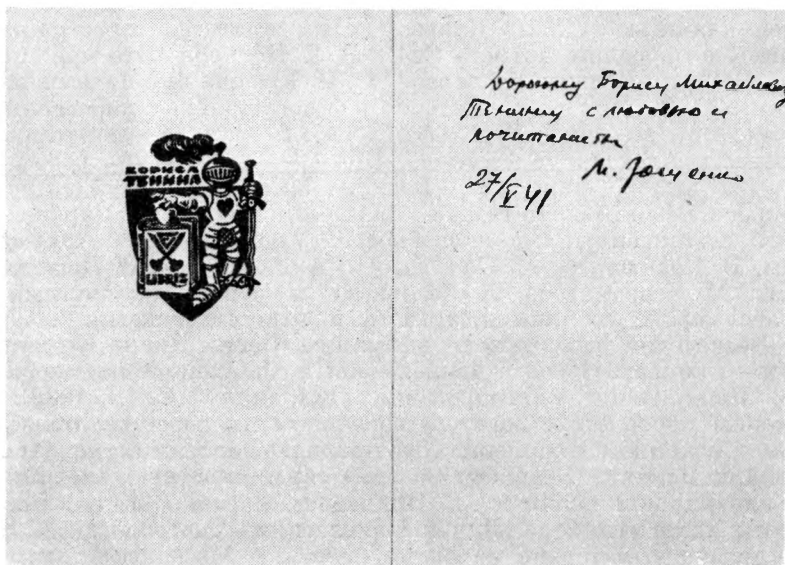 БОРИСА
ТЕНИНА
LIBRIS
Дорогому Борису Михайловичу
Тенину с любовью и
почитанием
М. Зощенко
27/V 41